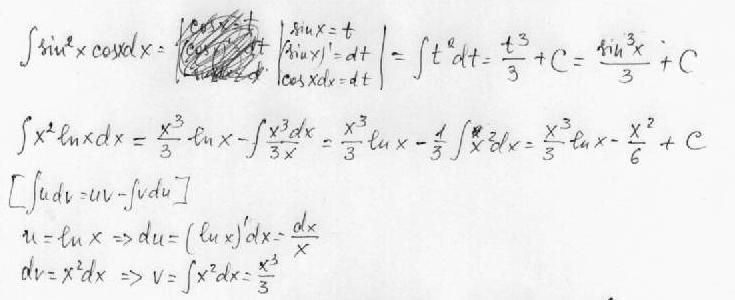 ∫sin²x cosxdx = |sinx = t
(sinx)' = dt
cosxdx = dt| = ∫t²dt = t³/3 + C = sin³x/3 + C
∫x² lnxdx = x³/3 lnx - ∫x³dx/3x = x³/3 lnx - 1/3 ∫x²dx = x³/3 lnx - x²/6 + C
[∫udv = uv - ∫vdu]
u = lnx => du = (lnx)'dx = dx/x
dv = x²dx => v = ∫x²dx = x³/3